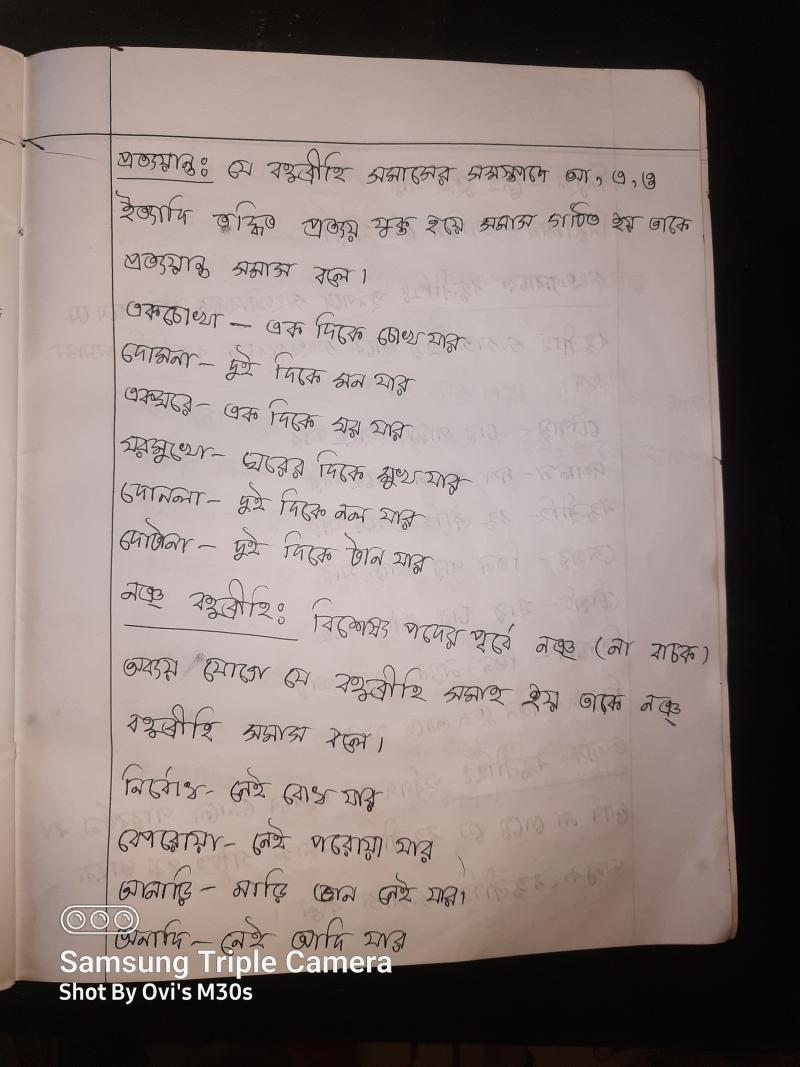 প্রত্যয়ান্তঃ যে বহুব্রীহি সমাসের সমস্তপদে আ, এ, ও
ইত্যাদি তদ্ধিত প্রত্যয় যুক্ত হয়ে সমাস গঠিত হয় তাকে
প্রত্যয়ান্ত সমাস বলে।
একচোখা - এক দিকে চোখ যার
দোমনা - দুই দিকে মন যার
একঘরে - এক দিকে ঘর যার
ঘরমুখো - ঘরের দিকে মুখ যার
দোনলা - দুই দিকে নল যার
দোটানা - দুই দিকে টান যার
নঞ্ বহুব্রীহিঃ বিশেষ্য পদের পূর্বে নঞ্ (না বাচক)
অব্যয় যোগে যে বহুব্রীহি সমাস হয় তাকে নঞ্
বহুব্রীহি সমাস বলে।
নির্বোধ - নেই বোধ যার
বেপরোয়া - নেই পরোয়া যার
আনাড়ি - নাড়ি জ্ঞান নেই যার।
অনাদি - নেই আদি যার
Samsung Triple Camera
Shot By Ovi's M30s